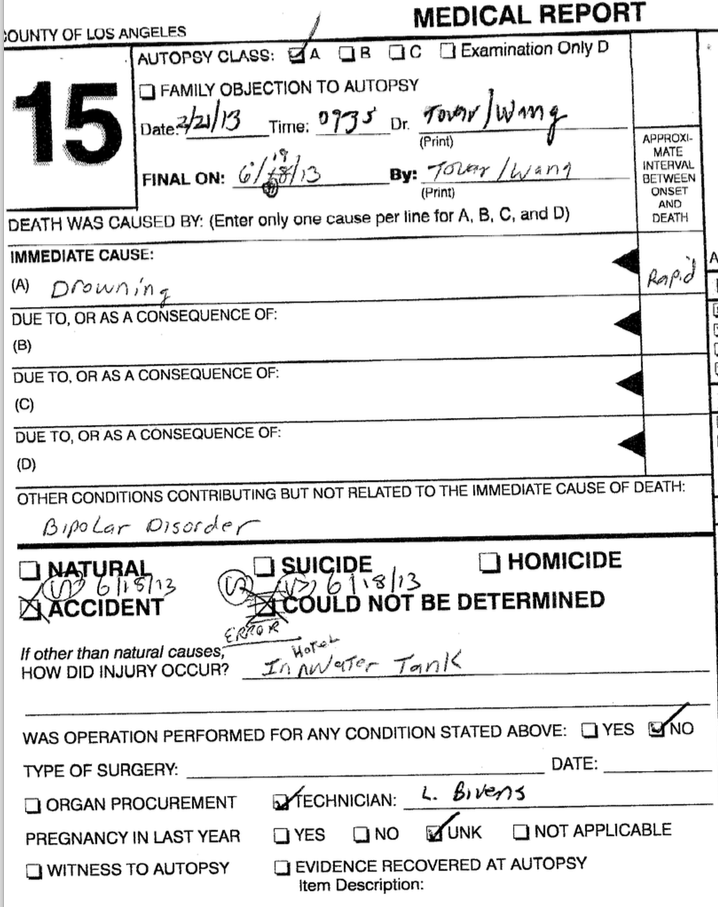 MEDICAL REPORT
COUNTY OF LOS ANGELES
15
AUTOPSY CLASS: A B C Examination Only D
FAMILY OBJECTION TO AUTOPSY
Date: 2/21/13 Time: 0935 Dr. Tovar/Wang
(Print)
FINAL ON: 6/18/13 By: Tovar/Wang
(Print)
APPROXI-
MATE
INTERVAL
BETWEEN
ONSET
AND
DEATH
DEATH WAS CAUSED BY: (Enter only one cause per line for A, B, C, and D)
IMMEDIATE CAUSE:
(A) Drowning Rapid
DUE TO, OR AS A CONSEQUENCE OF:
(B)
DUE TO, OR AS A CONSEQUENCE OF:
(C)
DUE TO, OR AS A CONSEQUENCE OF:
(D)
OTHER CONDITIONS CONTRIBUTING BUT NOT RELATED TO THE IMMEDIATE CAUSE OF DEATH:
Bipolar Disorder
NATURAL SUICIDE HOMICIDE
6/18/13 6/18/13
ACCIDENT COULD NOT BE DETERMINED
ERROR
If other than natural causes,
HOW DID INJURY OCCUR? In Hotel Water Tank
WAS OPERATION PERFORMED FOR ANY CONDITION STATED ABOVE: YES NO
TYPE OF SURGERY: DATE:
ORGAN PROCUREMENT TECHNICIAN: L. Bivens
PREGNANCY IN LAST YEAR YES NO UNK NOT APPLICABLE
WITNESS TO AUTOPSY EVIDENCE RECOVERED AT AUTOPSY
Item Description: